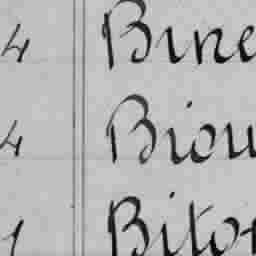 4 Bine
4 Biou
1 Bitor